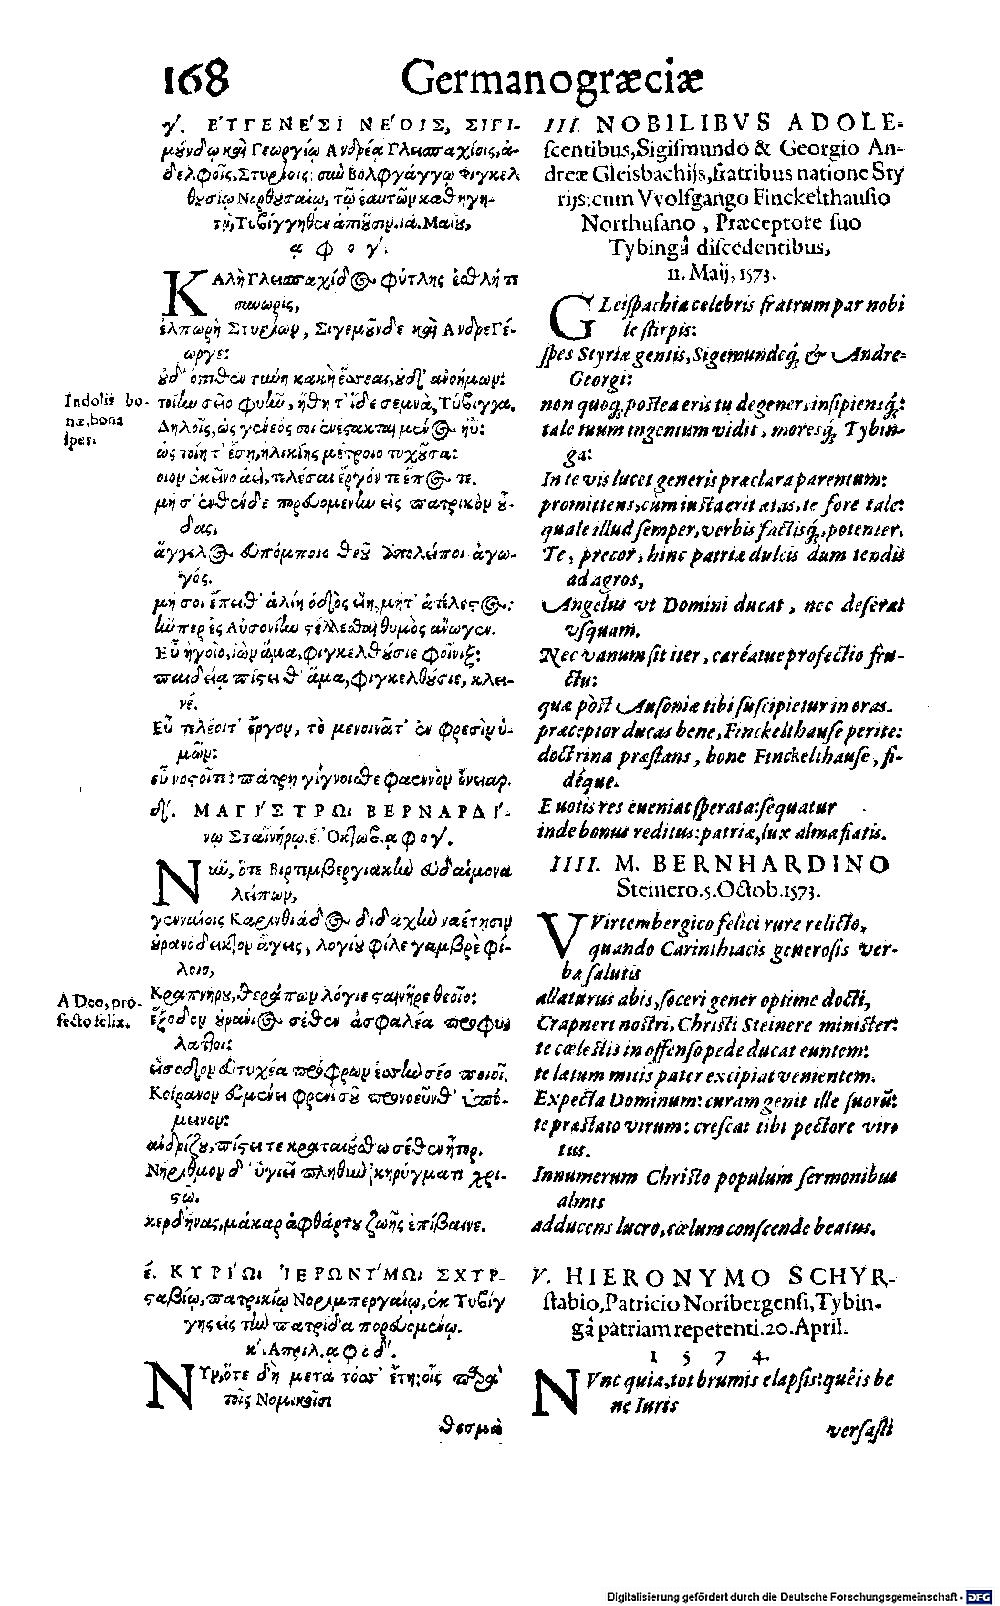 168
Germanograeciæ
γ΄. ΕὙΓΕΝΕ΄ΣΙ ΝΕ΄ΟΙΣ, ΣΙΓΙ-
μούνδῳ καὶ Γεωργίῳ Ἀνδρέᾳ Γλεισπαχίοις, ἀ-
δελφοῖς, Στυρίοις: σὺν Βολφγάγγῳ Φιγκελ
θουσίῳ Νερθουσαίῳ, τῷ ἑαυτῶν καθηγη-
τῇ, Τυβίγγηθεν ἀπιοῦσιν. ια. Μαίου,
α φ ο γ΄.
ΚΑλὴ Γλεισπαχίδος φύτλης ἐσθλή τι
συνωρὶς,
ἐλπωρὴ Στυρίων, Σιγεμοῦνδε καὶ ἈνδρεΓέ-
ωργε:
οὐδ' ὄπιθεν τούνη κακὴ ἔσσεαι, οὐδ' ἀνοήμων:
τοίην σὴν φυὴν, ἤθη τ' ἴδε σεμνὰ, Τύβιγγα.
Δηλοῖς, ὡς γένεός σοι ἐνέστακται μένος ἠΰ:
ὡς τοίη τ' ἔσῃ, ἡλικίης μέτροιο τυχοῦσα:
οἷον ἐκεῖνο ἀεὶ, τελέσαι ἔργόν τε ἔπος τε.
μή σ' ἐνθένδε πορευομένην εἰς πατρικὸν οὖ-
δας,
ἄγγελος εὔπομπος θεοῦ ἐκλείποι ἀγω-
γός.
μή σοι ἔπειθ' ἁλίη ὁδὸς εἴη, μήτ' ἀτέλεστος:
ἥνπερ ἐς Αὐσονίην στέλλεσθαι θυμὸς ἀνώγει.
Εὖ ἡγοῖο, ἰὼν ἅμα, Φιγκελθούσιε Φοῖνιξ:
παιδείᾳ πίστει θ' ἅμα, Φιγκελθούσιε, κλει-
νέ.
Εὖ τελέοιτ' ἔργον, τὸ μενοινᾶτ' ἐν φρεσὶν ὑ-
μῶν:
εὖ νοστοῖτε: πάτρῃ γίγνοισθε φαεινὸν ὄνειαρ.
δ΄. ΜΑΓΙ΄ΣΤΡΩι ΒΕΡΝΑΡΔΙ΄-
νῳ Σταϊνήρῳ. ε΄. Ὀκτωβ. α φ ο γ΄.
ΝΥν, ὅτε Βιρτιμβεργιακὴν εὐδαίμονα
λείπων,
γενναίοις Καρινθιάδος διδαχὴν ναέτησιν
οὐρανόδεικτον ἄγεις, λογίου φίλε γαμβρὲ φί-
λοιο,
Κραπνήρου, θεράπων λόγιε Σταινῆρε θεοῖο:
ἔξοδον οὐράνιος σέθεν ἀσφαλέα προφυ
λάττοι:
εἴσοδον εὐτυχέα πρόφρων ἑστὼ σέο ποιοῖ.
Κοίρανον εὖ μένε: φρενὶ σοῦ προνοεῦνθ' ὑπό-
μεινον:
ἀνδρίζου, πίστει τε κραταιούσθω σέθεν ἦτορ.
Νήριθμον δ' ὑγιεῖ πληθὺν κηρύγματι χρι-
στῷ.
κερδήνας, μάκαρ ἀφθάρτου ζωῆς ἐπίβαινε.
έ. ΚΥΡΙ΄Ωι ἹΕΡΩΝΥ΄ΜΩι ΣΧΥΡ-
σταβίῳ, πατρικίῳ Νοριμπεργαίῳ, ἐκ Τυβίγ
γης εἰς τὴν πατρίδα πορευομένῳ.
κ΄. Ἀπριλ. α φ ο δ΄.
ΝΥν, ὅτε δὴ μετὰ τόσσ' ἔτη: οἷς παρὰ
τοῖς Νομικοῖσι
θεσμὰ
Indolis bo-
næ, bona
spes.
A Deo, pro-
fecto felix.
III. NOBILIBVS ADOLE-
scentibus, Sigismundo & Georgio An-
dreæ Gleisbachijs, fratribus natione Sty
rijs: cum VVolfgango Finckelthausio
Northusano, Præceptore suo
Tybingâ discedentibus,
11. Maij, 1573.
GLeispachiæ celebris fratrum par nobi
le stirpis:
spes Styriæ gentis, Sigemundeq́, & Andre-
Georgi:
non quoq, postea eris tu degener, insipiensq́:
tale tuum ingenium vidit, moresq́, Tybin-
ga:
In te vis lucet generis præclara parentum:
promittens, cùm iusta erit ætas, te fore tale:
quale illud semper, verbis factisq́, potenter.
Te, precor, hinc patriæ dulcis dum tendis
ad agros,
Angelus vt Domini ducat, nec deserat
vsquam.
Nec vanum sit iter, careátue profectio fru-
ctu:
quæ pòst Ausoniæ tibi suscipietur in oras.
præceptor ducas bene, Finckelthause perite:
doctrina præstans, bone Finckelthause, fi-
déque.
E uotis res eueniat sperata: sequatur
inde bonus reditus: patriæ, lux alma fiatis.
IIII. M. BERNHARDINO
Steinero. 5. Octob. 1573.
VVirtembergico felici rure relicto,
quando Carinthiacis generosis ver-
ba salutis
allaturus abis, soceri gener optime docti,
Crapneri nostri, Christi Steinere minister:
te cælestis inoffenso pede ducat euntem:
te lætum mitis pater excipiat venientem.
Expecta Dominum: curam genit ille suorũ:
te præstato virum: crescat tibi pectore vir-
tus.
Innumerum Christo populum sermonibus
almis
adducens lucro, cælum conscende beatus.
V. HIERONYMO SCHYR-
stabio, Patricio Noribergensi, Tybin-
gâ patriam repetenti. 20. April.
1 5 7 4.
NVnc quia, tot brumis elapsis: quêis be
ne Iuris
versasti
Digitalisierung gefördert durch die Deutsche Forschungsgemeinschaft - DFG